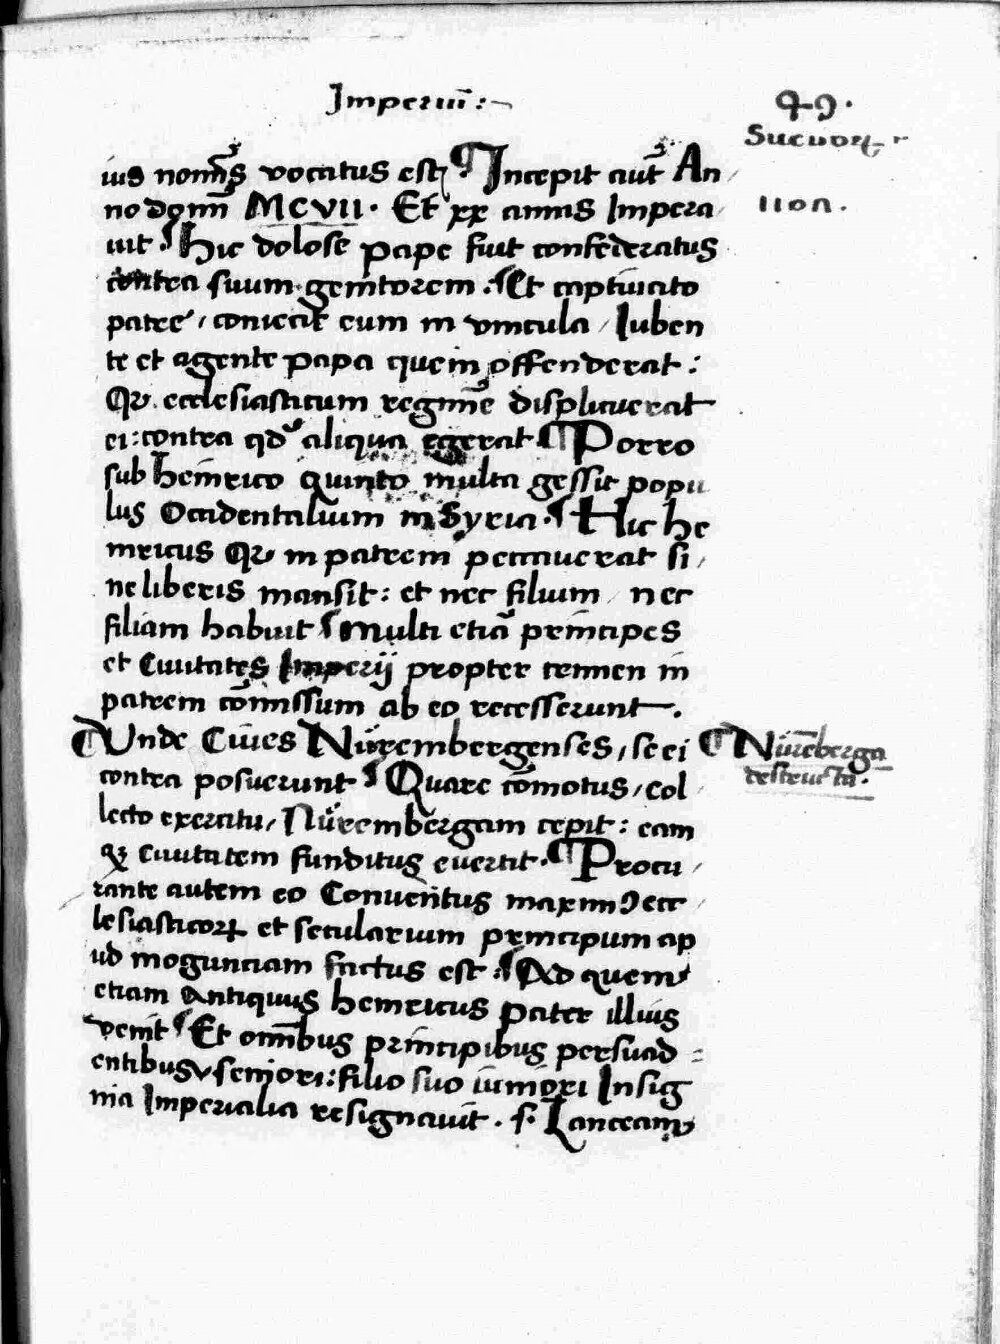 Imperiū :~
49.
Sucuoꝝ
1107.
ius nomīs vocatus est ¶ Incepit aūt An
no domī MCVII. Et xx annis Impera
uit. ¶ Hic dolose pape fuit confederatus
contra suum genitorem. ¶ Et captiuato
patre, coniecit eum in vincula / Iuben
te et agente papa quem offenderat:
Qꝛ ecclesiasticum regimē displicuerat
ei: contra qd' aliqua egerat ¶ Porro
sub heinrico quinto multa gessit popu
lus Occidentalium in Syria. ¶ Hic he
inricus Qꝛ in patrem peccauerat si
ne liberis mansit: et nec filium nec
filiam habuit ¶ Multi etiā principes
et Ciuitates Imperij propter crimen in
patrem cōmissum ab eo recesserunt.
¶ Unde Ciues Nürembergenses, se ei
contra posuerunt ¶ Quare cōmotus, col
lecto exercitu, Nürembergam cepit: eam
qꝫ ciuitatem funditus euertit. ¶ Procu
rante autem eo Conuentus maximꝰ ecc
lesiasticoꝝ et secularium principum ap
ud moguntiam factus est: ¶ Ad quem
etiam Antiquus heinricus pater illius
venit ¶ Et omībus principibus persuad
entibus, seniori: filio suo iuniori Insig
nia Imperialia resignauit. s. Lanceam
¶ Nürēberga
destructa.